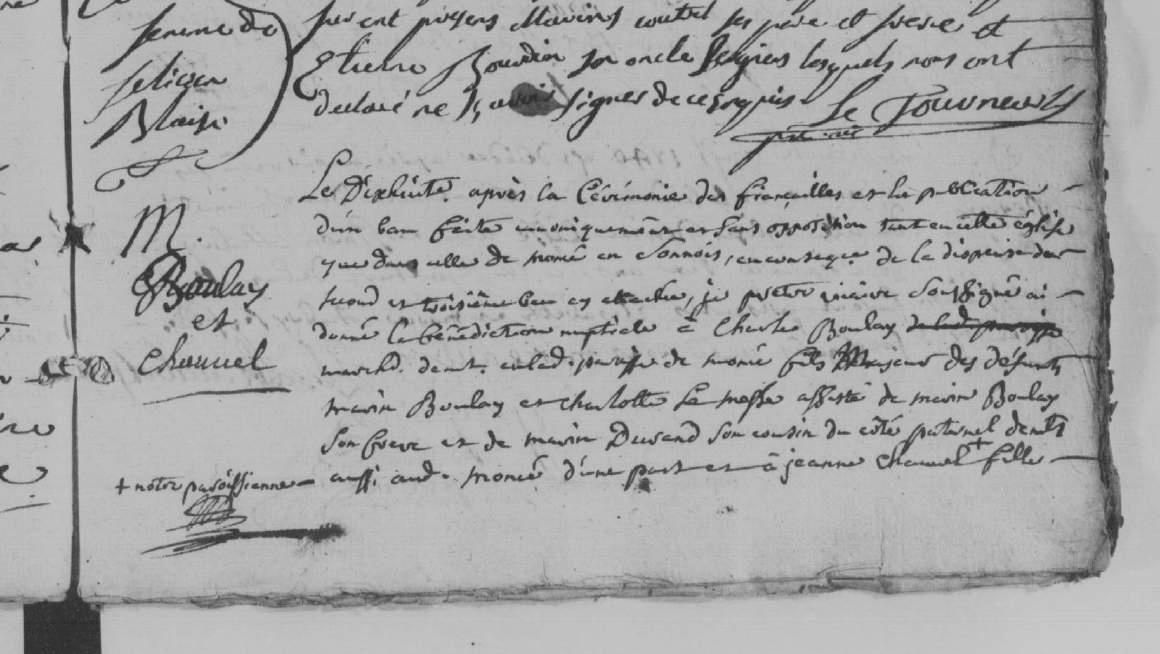 femme de
felicien
Blaise
furent presens Marinot coutel ses pere et frere et
Etienne Bourdin son oncle lesquels nous ont
declaré ne sçavoir signer de ce enquis Le Tourneur
M.
Boulay
et
Chauvel
Le Dixhuite. après la Cérémonie des fiançailles et la publication
d'un ban faite canoniquement et sans opposition tant en cette église
que dans celle de moncé en Sonnois, en conseqce. de la dispense du
second et troisième ban en attachée, je prêtre vicaire Soussigné ai
donné la bénédiction nuptiale à Charle Boulay de lad. paroisse
marchd. demt. en lad. paroisse de moncé fils Majeur des défunts
marin Boulay et charlotte Le messe assisté de marin Boulay
Son frere et de marin Durand Son cousin du côté paternel demts
aussi aud. moncé d'une part et à jeanne chauvel + fille
+ notre paroissienne